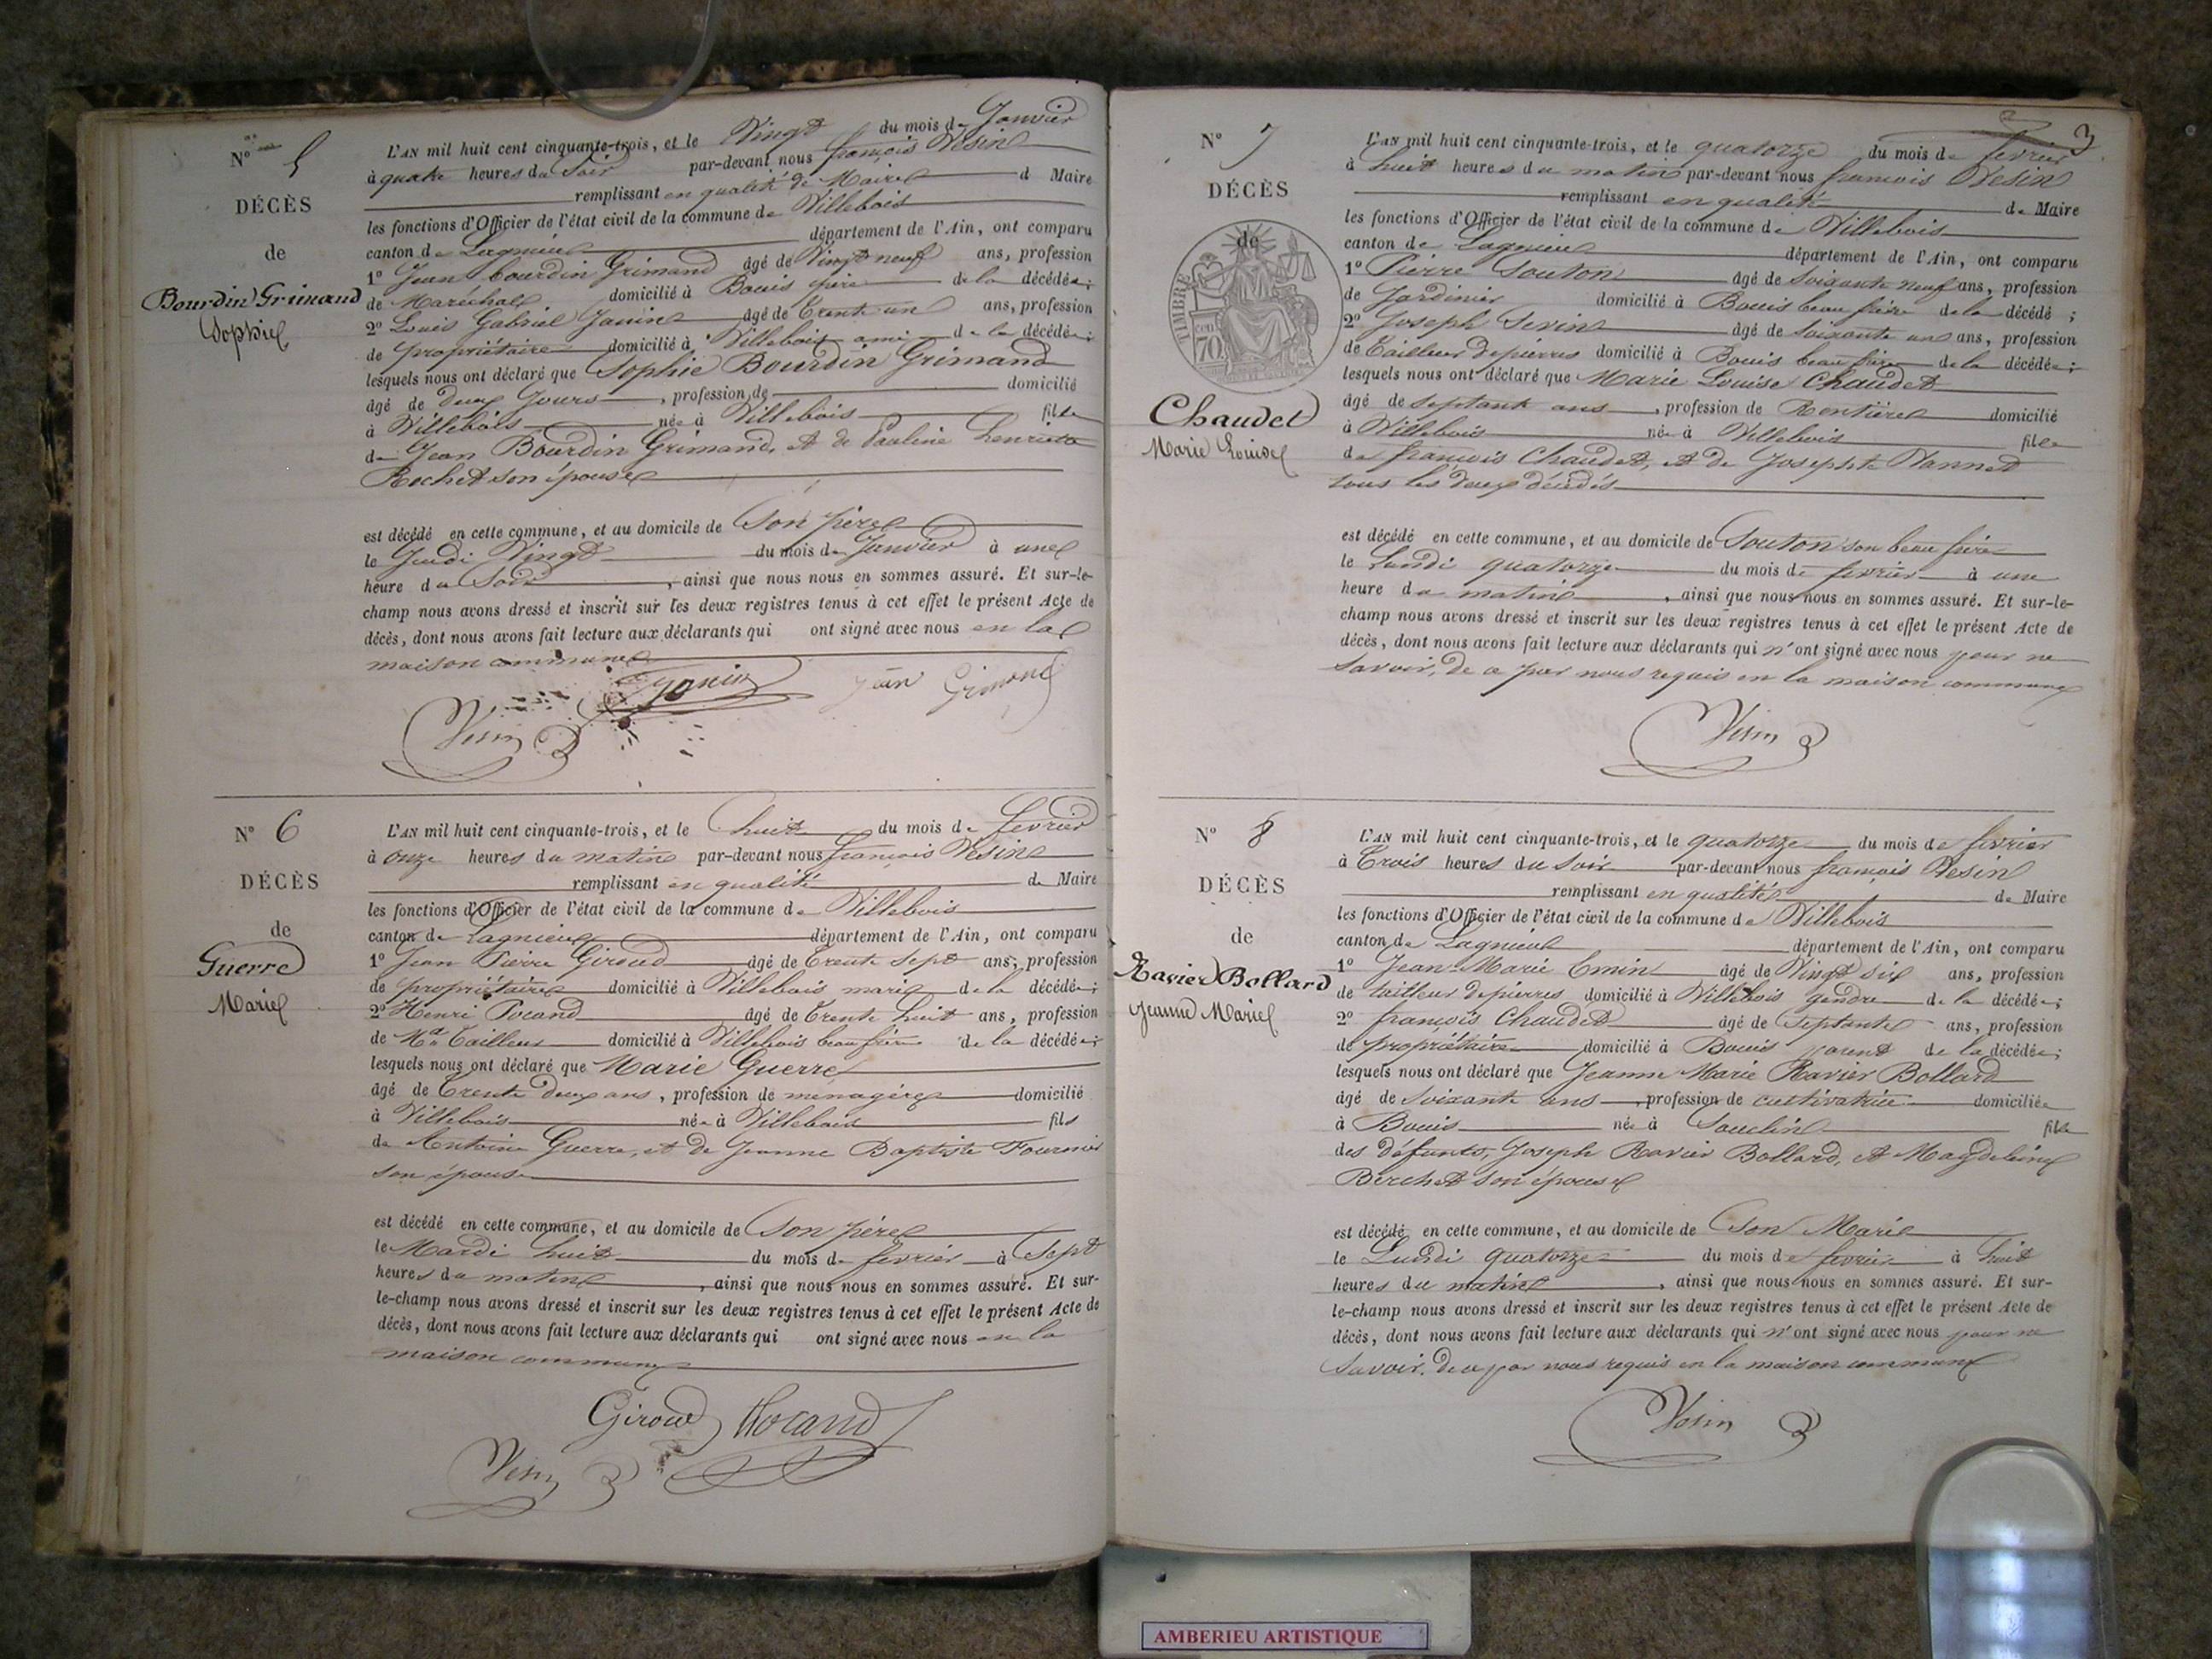 N° 5
DÉCÈS
de
Bourdin Grimaud
Sophie
L'AN mil huit cent cinquante-trois, et le Vingt du mois de Janvier
à quatre heures du Soir par-devant nous françois Vesin
remplissant en qualité de Maire d Maire
les fonctions d'Officier de l'état civil de la commune de Villebois
canton de Lagnieu département de l'Ain, ont comparu
1° Jean Bourdin Grimand âgé de Vingt neuf ans, profession
de Maréchal domicilié à Bouis père de la décédée;
2° Louis Gabriel Janin âgé de Trente un ans, profession
de propriétaire domicilié à Villebois ami de la décédée;
lesquels nous ont déclaré que Sophie Bourdin Grimand
âgé de deux Jours, profession de domicilié
à Villebois née à Villebois fille
de Jean Bourdin Grimand, et de Pauline Henriette
Rochet son épouse
est décédé en cette commune, et au domicile de Son père
le Jeudi Vingt du mois de Janvier à une
heure du Soir, ainsi que nous nous en sommes assuré. Et sur-le-
champ nous avons dressé et inscrit sur les deux registres tenus à cet effet le présent Acte de
décès, dont nous avons fait lecture aux déclarants qui ont signé avec nous en la
maison commune
Janin Jean Grimand
Vesin
N° 6
DÉCÈS
de
Guerre
Marie
L'AN mil huit cent cinquante-trois, et le huit du mois de fevrier
à onze heures du matin par-devant nous françois Vesin
remplissant en qualité de Maire
les fonctions d'Officier de l'état civil de la commune de Villebois
canton de Lagnieu département de l'Ain, ont comparu
1° Jean Pierre Giroud âgé de Trente Sept ans, profession
de propriétaire domicilié à Villebois marie de la décédée;
2° Henri Pocand âgé de Trente huit ans, profession
de Md Tailleur domicilié à Villebois beau frère de la décédée;
lesquels nous ont déclaré que Marie Guerre
âgé de Trente deux ans, profession de ménagère domicilié
à Villebois née à Villebois fils
de Antoine Guerre, et de Jeanne Baptiste Fournier
son épouse
est décédé en cette commune, et au domicile de Son père
le Mardi huit du mois de fevrier à Sept
heures du matin, ainsi que nous nous en sommes assuré. Et sur-
le-champ nous avons dressé et inscrit sur les deux registres tenus à cet effet le présent Acte de
décès, dont nous avons fait lecture aux déclarants qui ont signé avec nous en la
maison commune
Giroud Pocand
Vesin
3
N° 7
DÉCÈS
de
TIMBRE
70
Chaudet
Marie Louise
L'AN mil huit cent cinquante-trois, et le quatorze du mois de fevrier
à huit heures du matin par-devant nous françois Vesin
remplissant en qualité de Maire
les fonctions d'Officier de l'état civil de la commune de Villebois
canton de Lagnieu département de l'Ain, ont comparu
1° Pierre Souton âgé de Soixante neuf ans, profession
de Jardinier domicilié à Bouis beau frère de la décédé;
2° Joseph Sevin âgé de Soixante un ans, profession
de Tailleur de pierres domicilié à Bouis beau frère de la décédée;
lesquels nous ont déclaré que Marie Louise Chaudet
âgé de Septante ans, profession de Rentière domicilié
à Villebois née à Villebois fille
de françois Chaudet, et de Josephte Vannet
tous les deux décédés
est décédé en cette commune, et au domicile de Souton son beau frère
le Lundi quatorze du mois de fevrier à une
heure du matin, ainsi que nous nous en sommes assuré. Et sur-le-
champ nous avons dressé et inscrit sur les deux registres tenus à cet effet le présent Acte de
décès, dont nous avons fait lecture aux déclarants qui n'ont signé avec nous pour ne
Savoir, de ce par nous requis en la maison commune
Vesin
N° 8
DÉCÈS
de
Ravier Bollard
Jeanne Marie
L'AN mil huit cent cinquante-trois, et le quatorze du mois de fevrier
à Trois heures du Soir par-devant nous françois Vesin
remplissant en qualité de Maire
les fonctions d'Officier de l'état civil de la commune de Villebois
canton de Lagnieu département de l'Ain, ont comparu
1° Jean-Marie Emin âgé de Vingt six ans, profession
de tailleur de pierres domicilié à Villebois gendre de la décédée;
2° françois Chaudet âgé de Septante ans, profession
de propriétaire domicilié à Bouis parent de la décédée;
lesquels nous ont déclaré que Jeanne Marie Ravier Bollard
âgé de Soixante ans, profession de cultivatrice domiciliée
à Bouis née à Souclin fille
des défunts, Joseph Ravier Bollard, et Magdeleine
Berchet son épouse
est décédé en cette commune, et au domicile de Son Marie
le Lundi quatorze du mois de fevrier à huit
heures du matin, ainsi que nous nous en sommes assuré. Et sur-
le-champ nous avons dressé et inscrit sur les deux registres tenus à cet effet le présent Acte de
décès, dont nous avons fait lecture aux déclarants qui n'ont signé avec nous pour ne
Savoir, de ce par nous requis en la maison commune
Vesin
AMBERIEU ARTISTIQUE